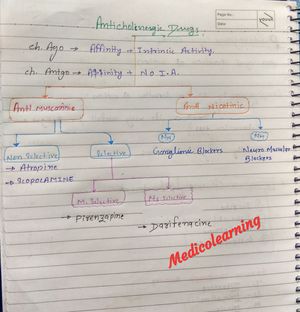 Page No.:
Date:
YOUVA
Anticholinergic Drugs.
ch. Ago → Affinity + Intrinsic Activity.
ch. Antgo → Affinity + No I.A.
Anti muscarinic
Anti Nicotinic
Non Selective
Selective
Nn
Nm
Ganglionic Blockers
Neuro Muscular
Blockers
→ Atropine
→ SCOPOLAMINE
M1 Selective
M3 Selective
→ Pirenzapine
→ Darifenacine
Medicolearning